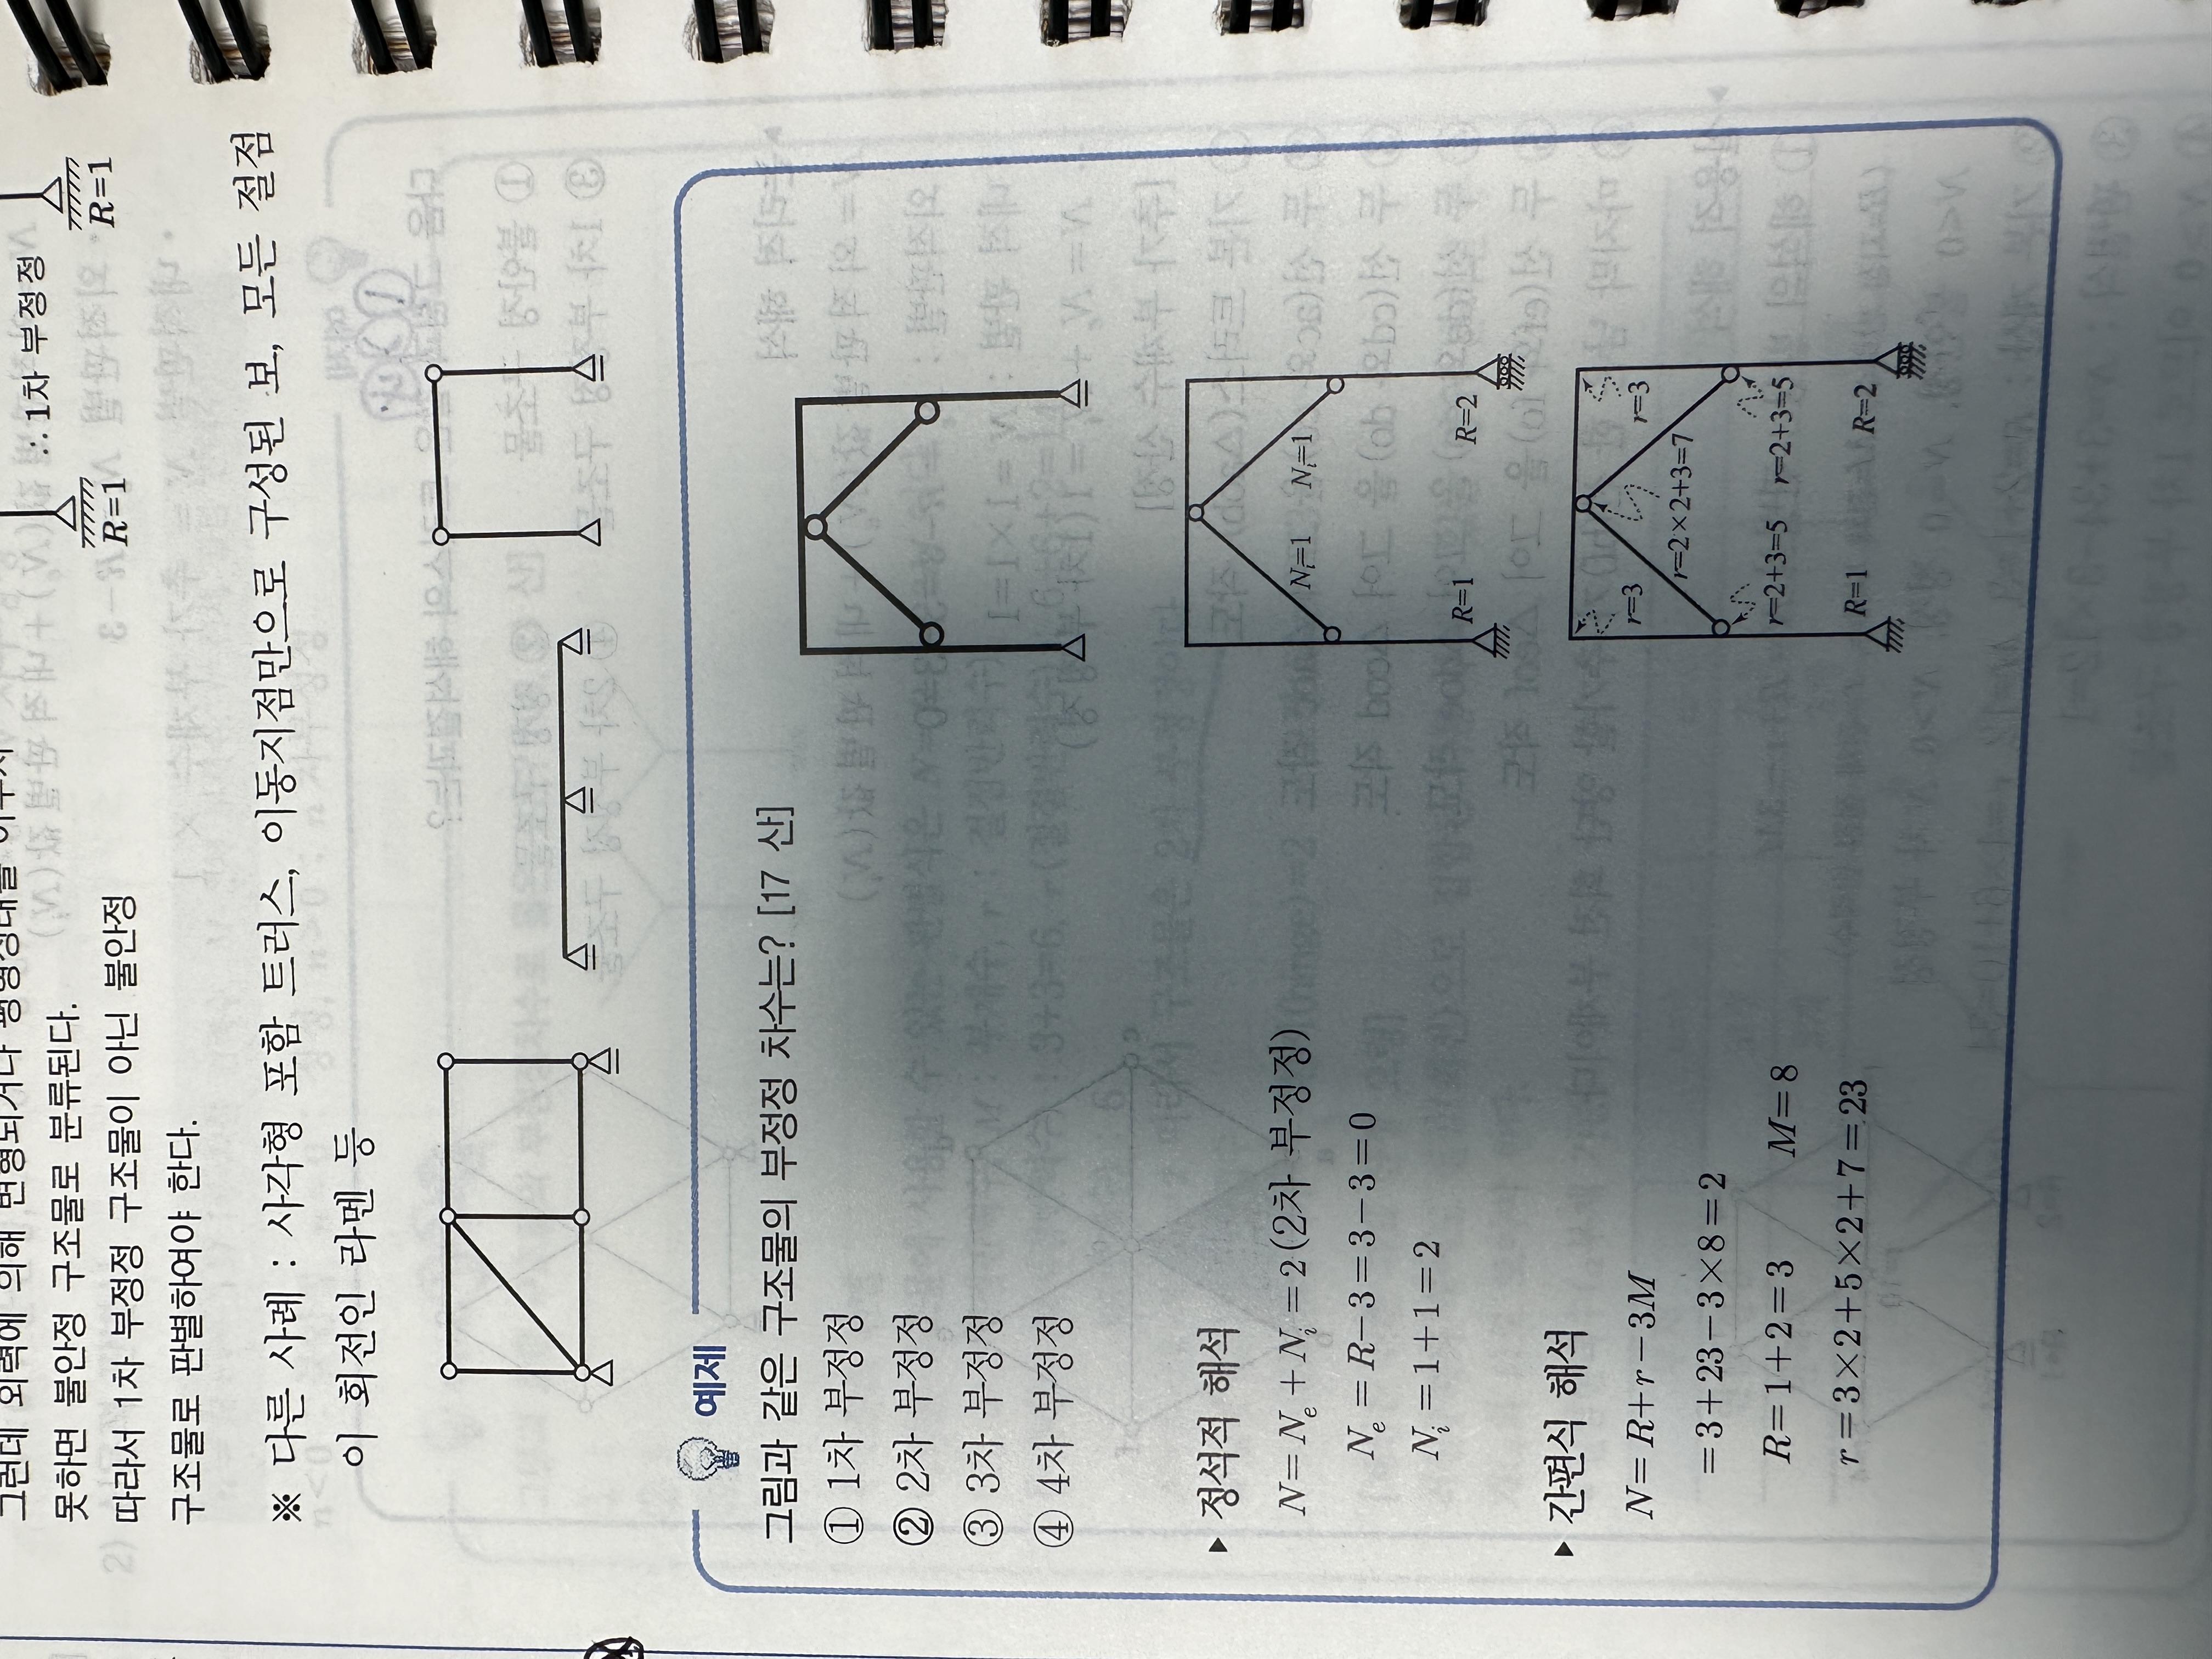 R=1
R=1
∴ 1차 부정정
그런데 외력에 의해 변형되거나 평형상태를
못하면 불안정 구조물로 분류된다.
2) 따라서 1차 부정정 구조물이 아닌 불안정
구조물로 판별하여야 한다.
※ 다른 사례 : 사각형 포함 트러스, 이동지점만으로 구성된 보, 모든 절점
이 회전인 라멘 등
예제
그림과 같은 구조물의 부정정 차수는? [17 산]
① 1차 부정정
② 2차 부정정
③ 3차 부정정
④ 4차 부정정
▶ 정석적 해석
N=Nₑ+Nᵢ=2(2차 부정정)
Nₑ=R−3=3−3=0
Nᵢ=1+1=2
Nᵢ=1 Nᵢ=1
R=1 R=2
▶ 간편식 해석
N=R+r−3M
=3+23−3×8=2
R=1+2=3 M=8
r=3×2+5×2+7=23
r=3 r=3
r=2×2+3=7
r=2+3=5 r=2+3=5
R=1 R=2